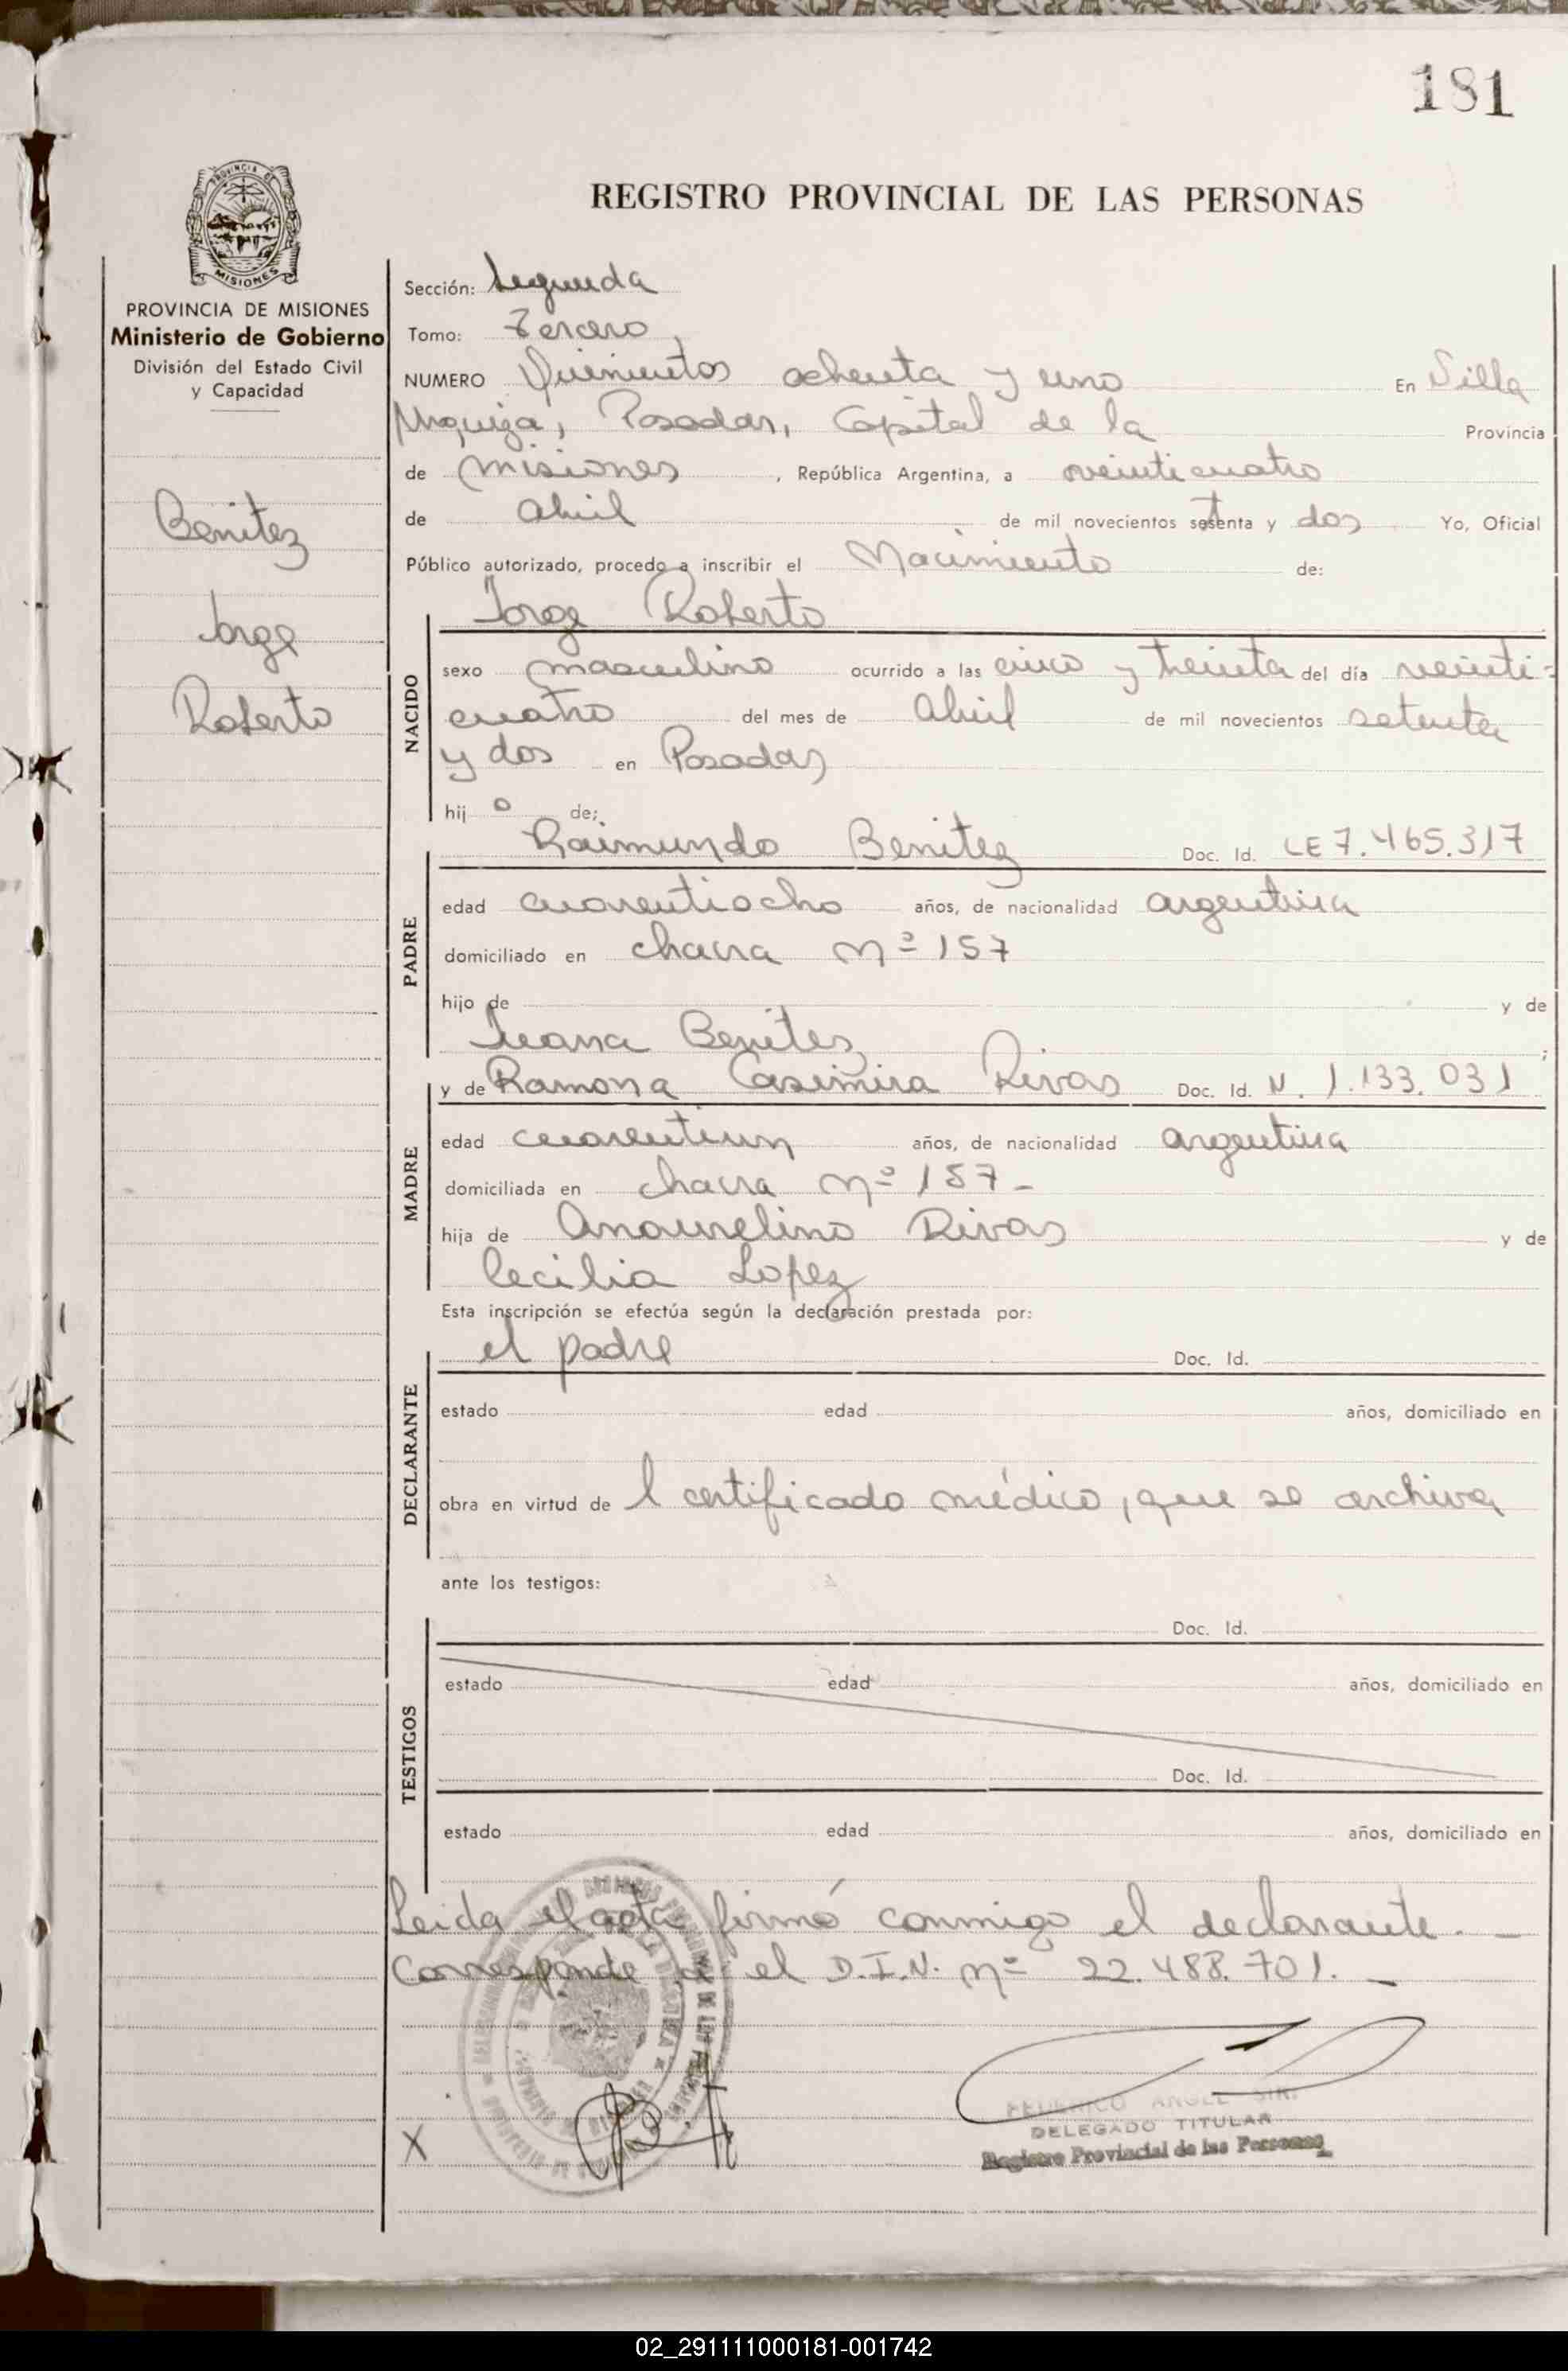 181
PROVINCIA DE
MISIONES
PROVINCIA DE MISIONES
Ministerio de Gobierno
División del Estado Civil
y Capacidad
Benitez
Jorge
Roberto
REGISTRO PROVINCIAL DE LAS PERSONAS
Sección: Segunda
Tomo: Tercero
NUMERO Quinientos ochenta y uno En Villa
Urquiza, Posadas, Capital de la Provincia
de Misiones, República Argentina, a veinticuatro
de Abril de mil novecientos setenta y dos Yo, Oficial
Público autorizado, procedo a inscribir el Nacimiento de:
Jorge Roberto
NACIDO
sexo masculino ocurrido a las cinco y treinta del día veinti=
cuatro del mes de Abril de mil novecientos setenta
y dos en Posadas
hij o de;
Raimundo Benitez Doc. Id. LE 7.465.317
PADRE
edad cuarentiocho años, de nacionalidad argentina
domiciliado en chacra nº 157
hijo de y de
Juana Benitez ;
y de Ramona Casimira Rivas Doc. Id. N. 1.133.031
MADRE
edad cuarentiun años, de nacionalidad argentina
domiciliada en chacra nº 157 -
hija de Anaurelino Rivas y de
Cecilia Lopez
Esta inscripción se efectúa según la declaración prestada por:
el padre Doc. Id.
DECLARANTE
estado edad años, domiciliado en
obra en virtud de l certificado médico, que se archiva
ante los testigos:
Doc. Id.
TESTIGOS
estado edad años, domiciliado en
Doc. Id.
estado edad años, domiciliado en
Leida el acta firmó conmigo el declarante. -
Corresponde a el D.I.N. nº 22.488.701. -
X
FEDERICO ANGEL
DELEGADO TITULAR
Registro Provincial de las Personas
02_291111000181-001742